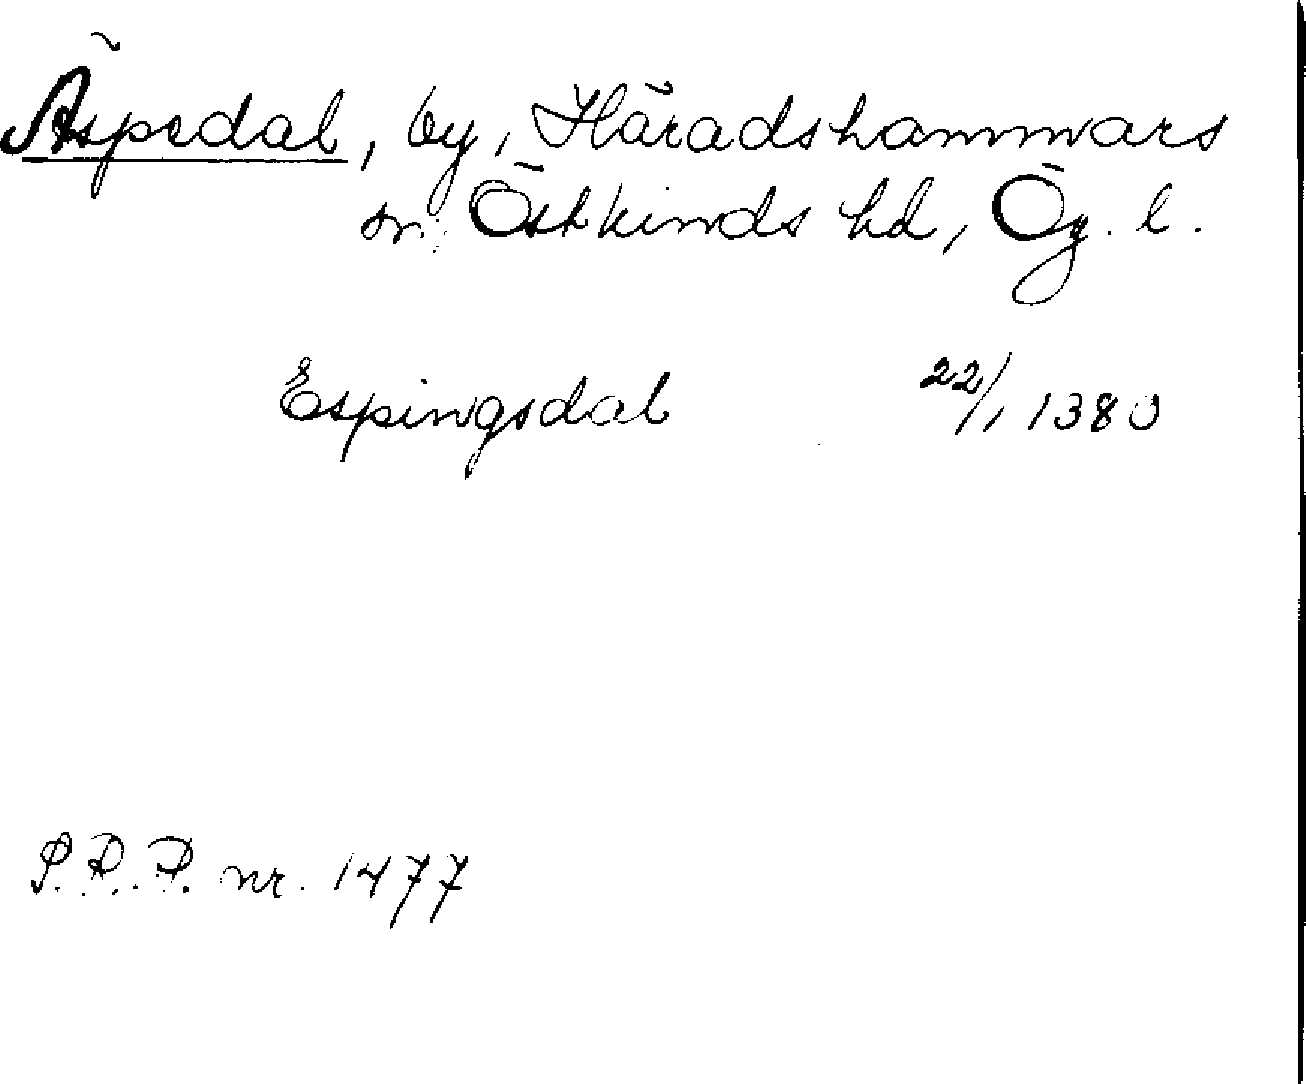 Äspedal, by, Häradshammars
sn. Östkinds hd, Ög. l.
Espingsdal 22/1 1380
P.R.P. nr. 1477